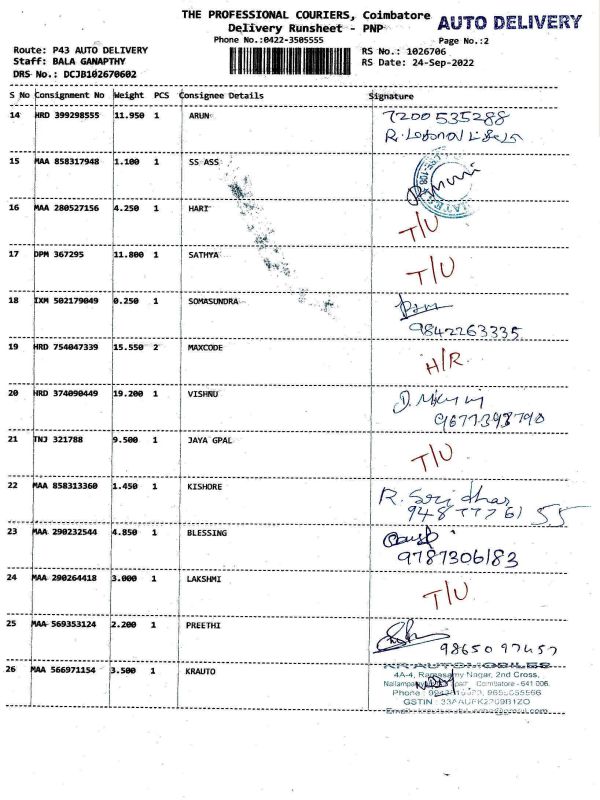 THE PROFESSIONAL COURIERS, Coimbatore
AUTO DELIVERY
Delivery Runsheet - PNP
Phone No.:0422-3505555
Page No.:2
Route: P43 AUTO DELIVERY
RS No.: 1026706
Staff: BALA GANAPTHY
RS Date: 24-Sep-2022
DRS No.: DCJB102670602
S No Consignment No Weight PCS Consignee Details Signature
14 HRD 399298555 11.950 1 ARUN 7200535288
15 MAA 858317948 1.100 1 SS ASS
16 MAA 280527156 4.250 1 HARI T/U
17 DPM 367295 11.800 1 SATHYA T/U
18 IXM 502179049 0.250 1 SOMASUNDRA
9842263335
19 HRD 754047339 15.550 2 MAXCODE H/R
20 HRD 374090449 19.200 1 VISHNU
21 TNJ 321788 9.500 1 JAYA GPAL T/U
22 MAA 858313360 1.450 1 KISHORE
23 MAA 290232544 4.850 1 BLESSING
9787306183
24 MAA 290264418 3.000 1 LAKSHMI T/U
25 MAA 569353124 2.200 1 PREETHI
9865097457
26 MAA 566971154 3.500 1 KRAUTO
KR AUTOMOBILES
4A-4, Ramasamy Nagar, 2nd Cross,
Coimbatore - 641 006.
Phone :
GSTIN :